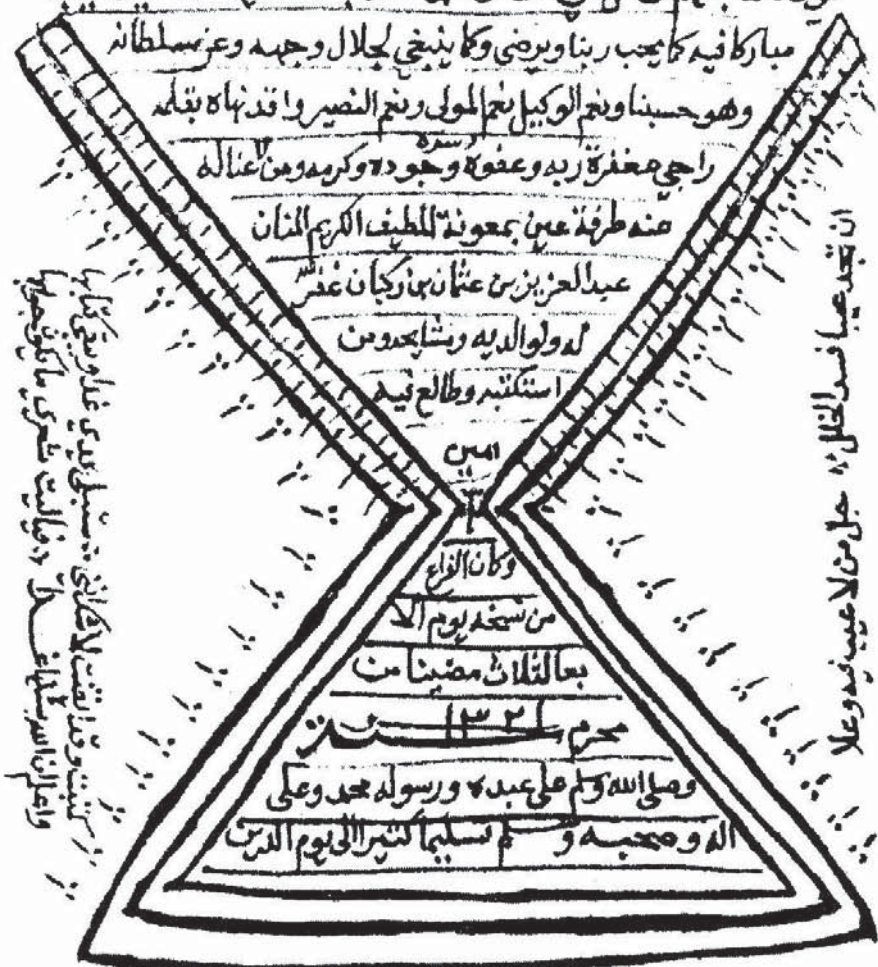 مباركا فيه كما يحب ربنا ويرضى وكما ينبغي لجلال وجهه وعز سلطانه
وهو حسبنا ونعم الوكيل نعم المولى ونعم النصير وا قد نهاه بقلمه
راجي مغفرة ربه وعفوه وستره وجوده وكرمه ومن لا غنا له
عنه طرفة عين بمعونة اللطيف الكريم المنان
عبد العزيز بن عثمان بن ركبان غفر الله
له ولوالديه ومشايخه ومن
استكتبه وطالع فيه
امين
٣
وكان الفراغ
من نسخه يوم الا
بعا لثلاث مضين من
محرم سنة ١٣٢١
وصلى الله وسلم على عبده ورسوله محمد وعلى
اله وصحبه وسلم تسليما كثيرا الى يوم الدين
ان تجد عيبا فسد الخللا جل من لا عيب فيه وعلا
كتبت وقد ايقنت لا شك انني ستبلى يدي غدا ويبقى كتابها
واعلم ان الله سيسألها غدا فيا ليت شعري ما يكون جوابها